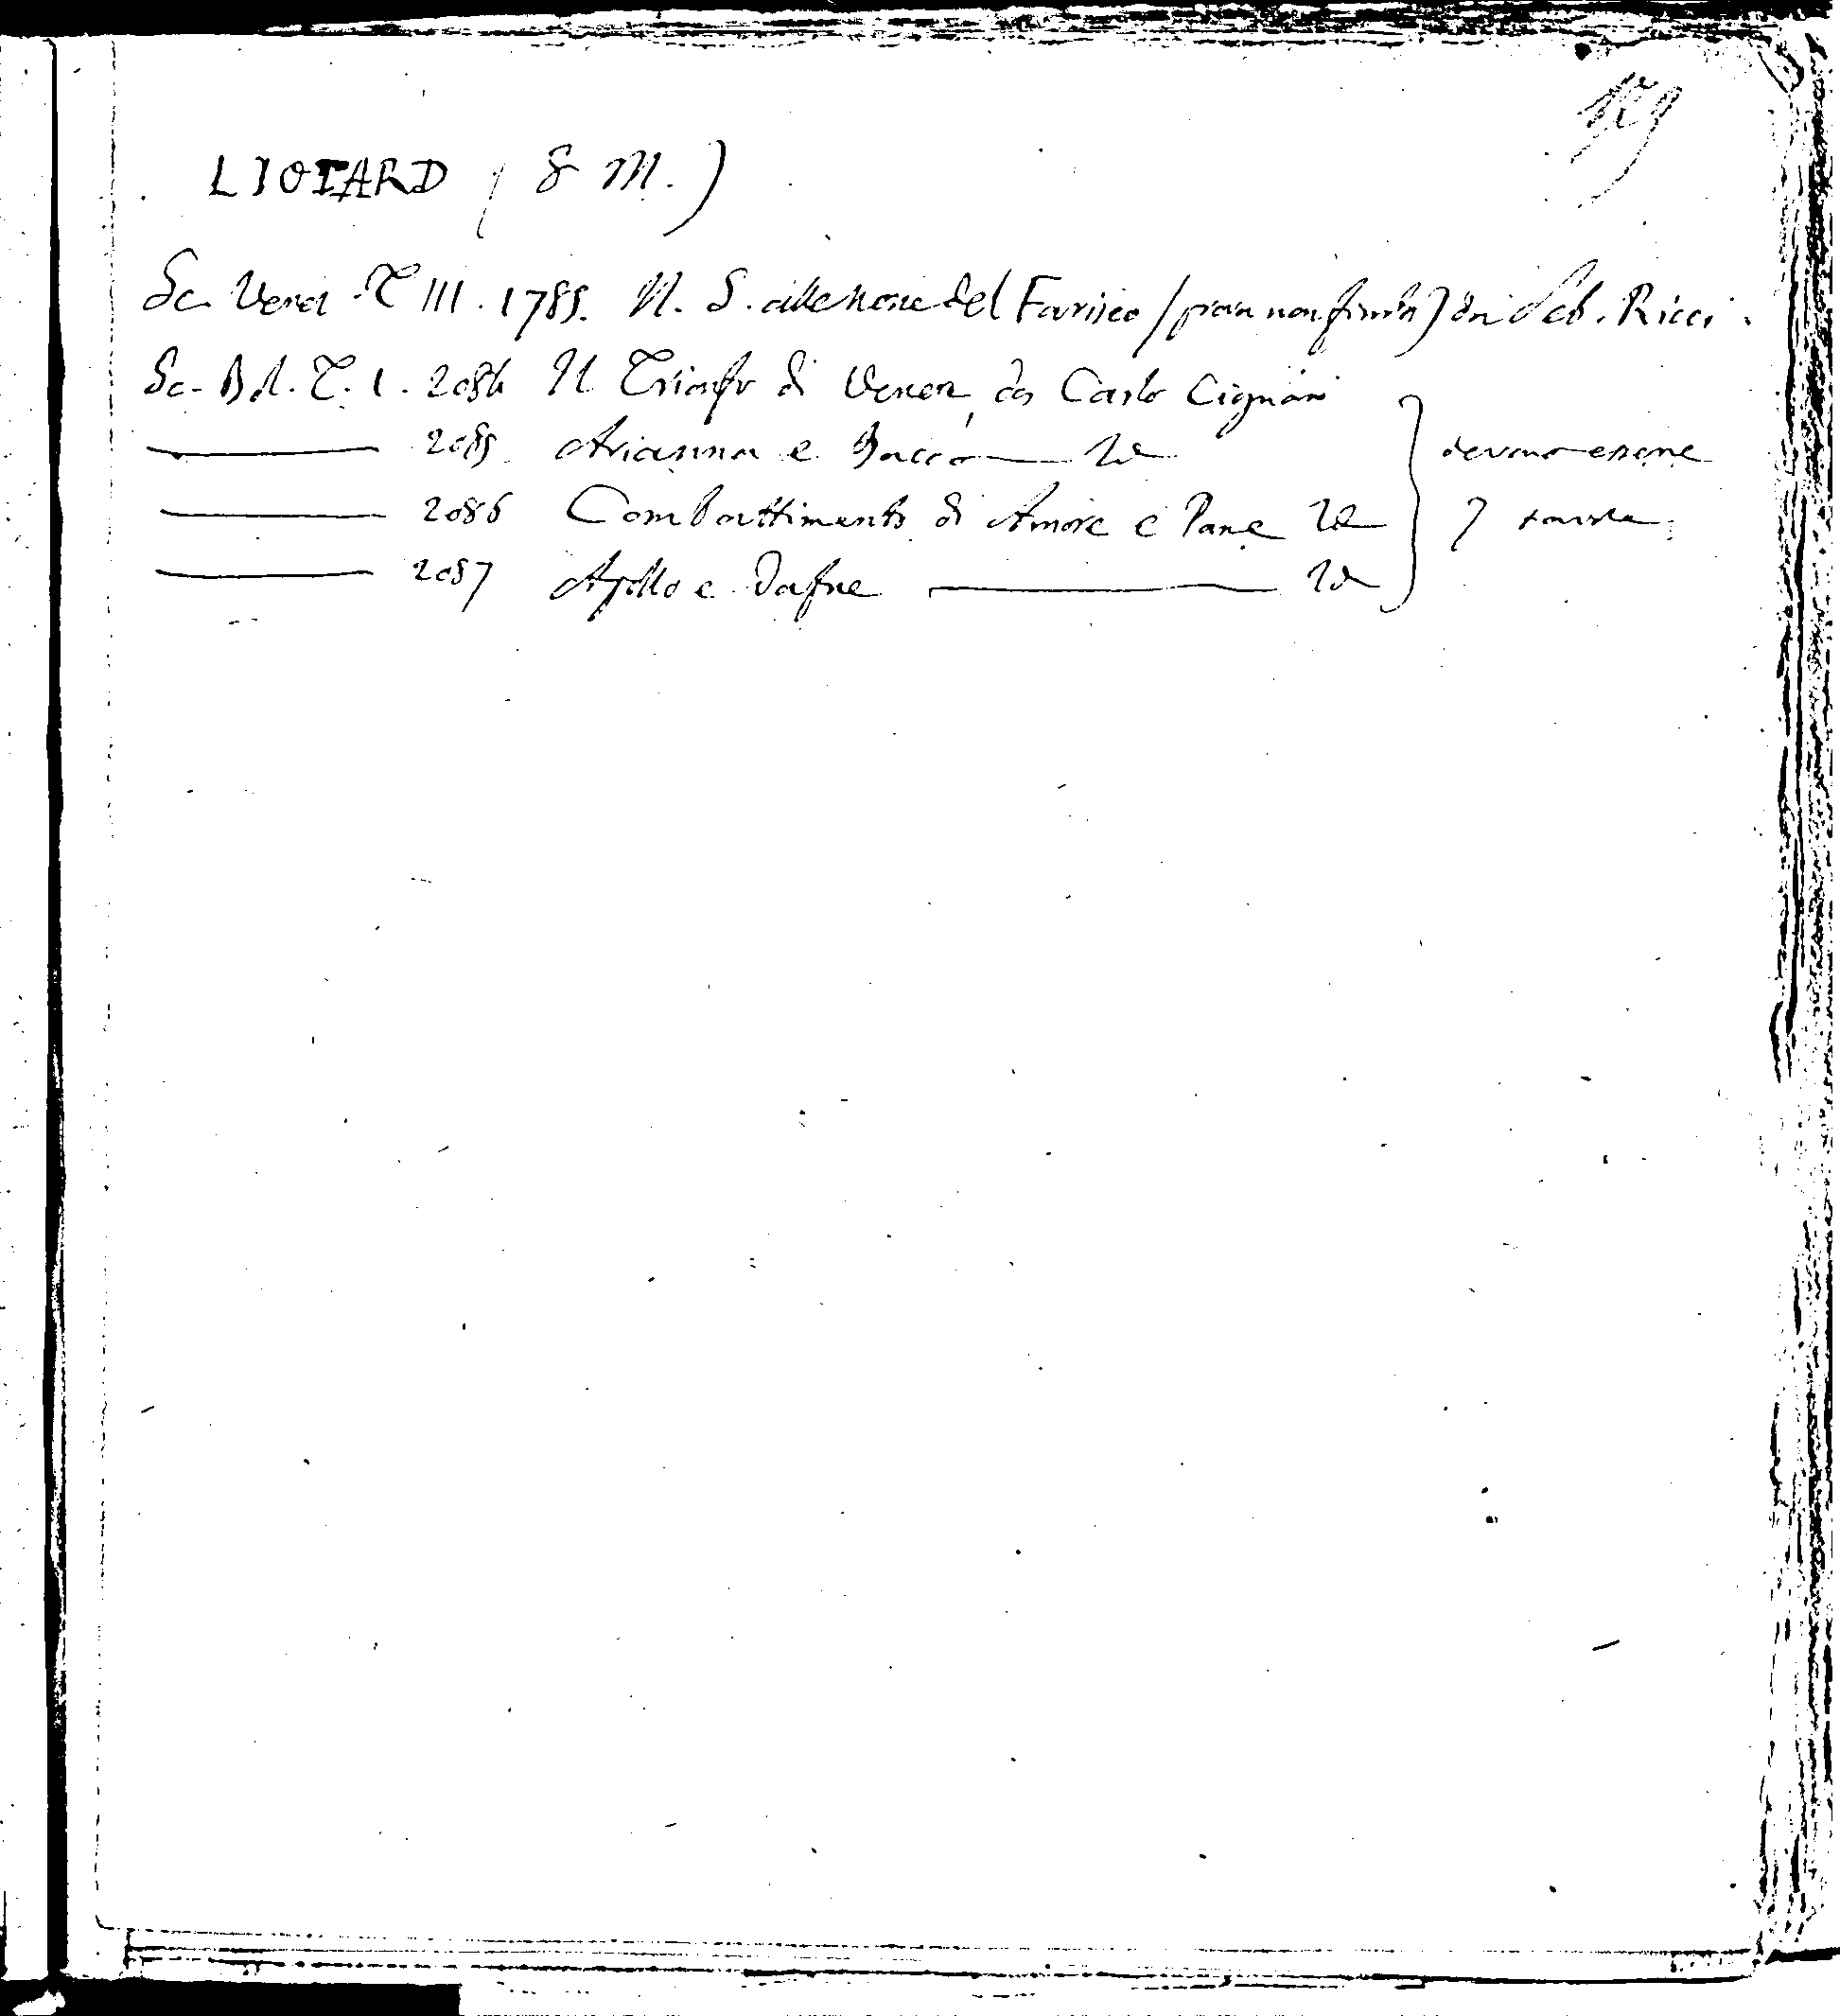 159
LIOTARD ( G M. )
Sc. Venez. T III. 1785. N. S. alle nozze del Fariseo (prova non finita) da Seb. Ricci.
Sc. Bol. T. 1. 2084 Il Trionfo di Venere da Carlo Cignani
2085 Arianna e Bacco Id
2086 Combattimento di Amore e Pane Id
2087 Apollo e Dafne Id
devono essere
7 tavole